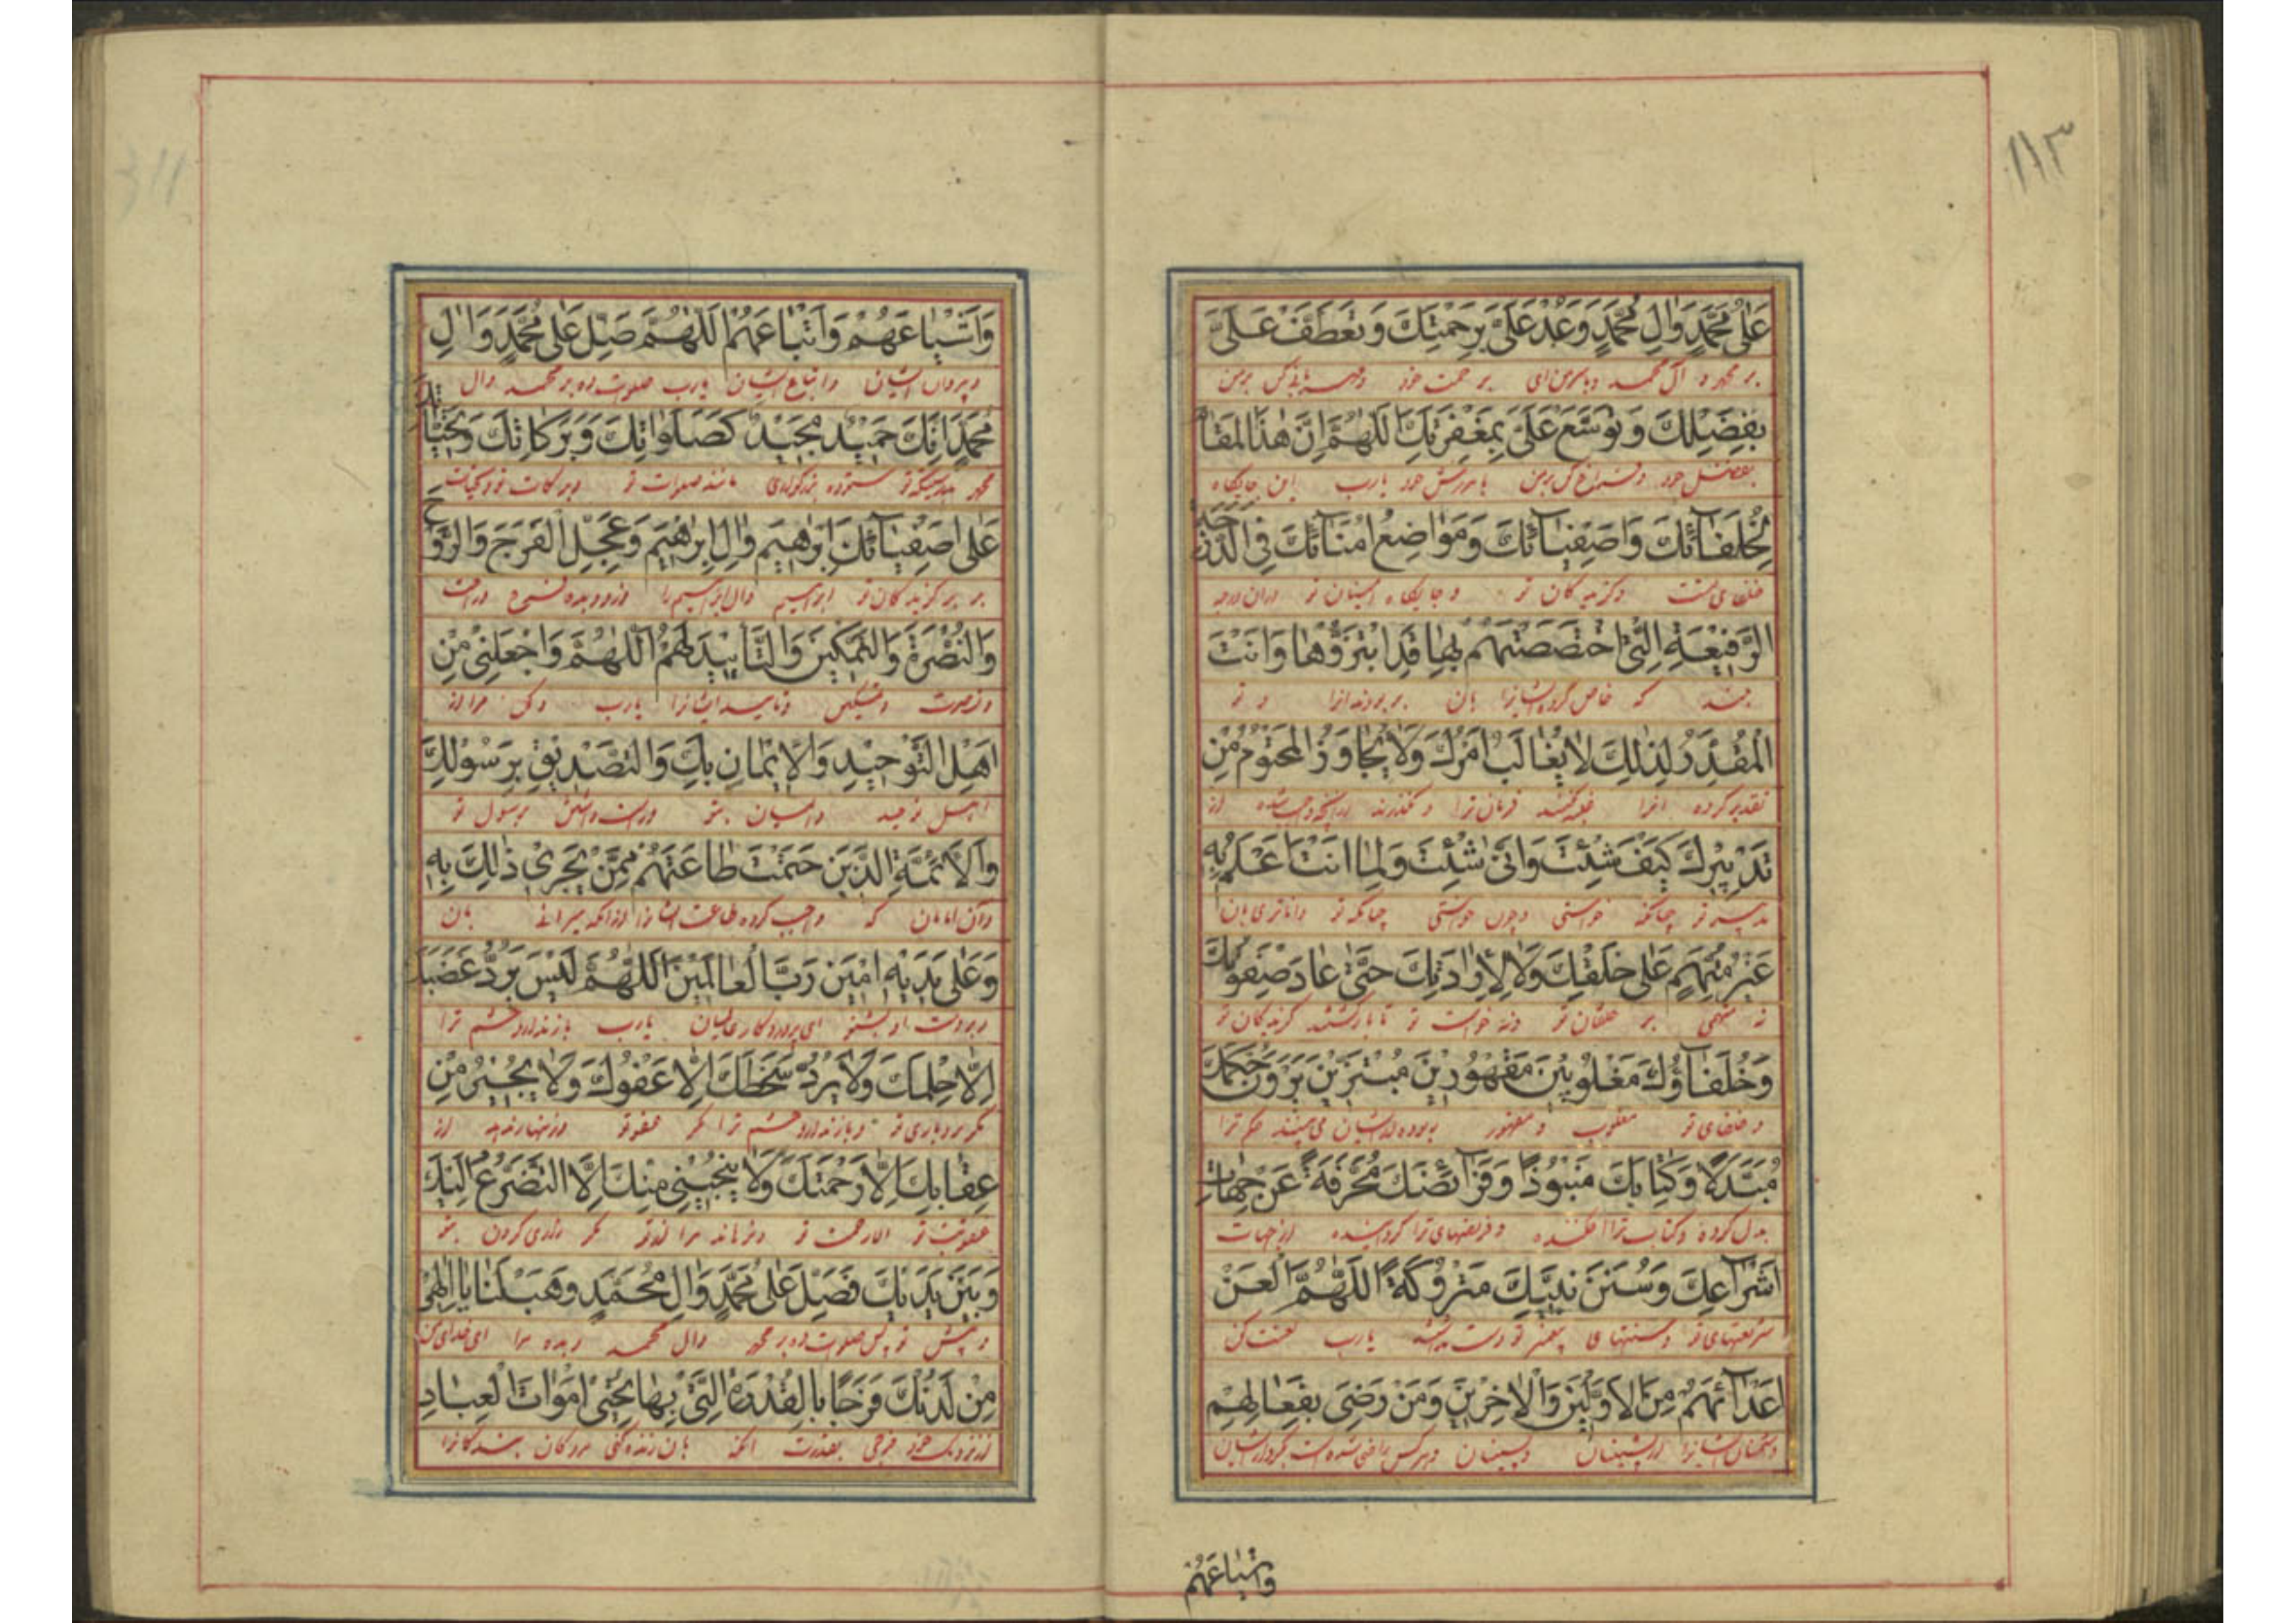 ١١٣
عَلىٰ مُحَمَّدٍ وَالِ مُحَمَّدٍ وَعُدْ عَلَىَّ بِرَحْمَتِكَ وَتَعَطَّفْ عَلَىَّ
بر محمد و آل محمد برحمت خود
بِفَضْلِكَ وَتَوَسَّعْ عَلَىَّ بِمَغْفِرَتِكَ اَللّٰهُمَّ اِنَّ هٰذَا الْمَقَامَ
بفضل خود و فراخ كن بر من بامرزش خود يارب اين جايگاه
لِخُلَفَآئِكَ وَاَصْفِيَآئِكَ وَمَوَاضِعُ اُمَنَآئِكَ فِى الدَّرَجَةِ
خلفاى تست و گزيدگان تو و جايگاه امينان تو در آن درجه
الرَّفِيْعَةِ الَّتِى اخْتَصَصْتَهُمْ بِهَا قَدِ ابْتَزُّوْهَا وَاَنْتَ
بلند كه خاص كرده ايشانرا بان بربودند انرا و تو
الْمُقَدِّرُ لِذٰلِكَ لَا يُغَالَبُ اَمْرُكَ وَلَا يُجَاوَزُ الْمَحْتُومُ مِنْ
تقدير كرده انرا غلبه نكنند فرمان ترا و نگذرند از
تَدْبِيْرِكَ كَيْفَ شِئْتَ وَاَنّٰى شِئْتَ وَلِمَا اَنْتَ اَعْلَمُ بِهِ
تدبير تو چنانكه خواستى و چون خواستى چنانكه تو داناترى بان
غَيْرُ مُتَّهَمٍ عَلىٰ خَلْقِكَ وَلَا لِاِرَادَتِكَ حَتّٰى عَادَ صِفْوَتُكَ
نه متهمى بر خلقان تو و نه خواست تو تا بازگشتند گزيدگان تو
وَخُلَفَآؤُكَ مَغْلُوبِيْنَ مَقْهُوْرِيْنَ مُبْتَزِّيْنَ يَرَوْنَ حُكْمَكَ
و خلفاى تو مغلوب و مقهور مى بينند حكم ترا
مُبَدَّلًا وَكِتَابَكَ مَنْبُوْذًا وَفَرَآئِضَكَ مُحَرَّفَةً عَنْ جِهَاتِ
بدل كرده و كتاب ترا افكنده و فريضهاى ترا گردانيده از جهات
اَشْرَاعِكَ وَسُنَنَ نَبِيِّكَ مَتْرُوكَةً اَللّٰهُمَّ الْعَنْ
شريعتهاى تو و سنتهاى پيغمبر تو يارب لعنت كن
اَعْدَآئَهُمْ مِنَ الْاَوَّلِيْنَ وَالْاٰخِرِيْنَ وَمَنْ رَضِىَ بِفِعَالِهِمْ
دشمنان ايشانرا از پيشينان و پسينان و هر كس راضى شده است بكردار ايشان
وَاَشْيَاعَهُمْ
وَاَشْيَاعَهُمْ وَاَتْبَاعَهُمْ اَللّٰهُمَّ صَلِّ عَلىٰ مُحَمَّدٍ وَالِ
و پيروان ايشان و اتباع ايشان يارب صلوت ده بر محمد و ال
مُحَمَّدٍ اِنَّكَ حَمِيْدٌ مَجِيْدٌ كَصَلَوَاتِكَ وَبَرَكَاتِكَ وَتَحِيَّاتِكَ
محمد بدرستيكه تو ستوده بزرگوارى مانند صلوات تو و بركات تو و تحيات
عَلىٰ اَصْفِيَآئِكَ اِبْرٰهِيْمَ وَاٰلِ اِبْرٰهِيْمَ وَعَجِّلِ الْفَرَجَ وَالرَّوْحَ
بر برگزيدگان تو ابراهيم و ال ابراهيم را و زود بده فرج و راحت
وَالنُّصْرَةَ وَالتَّمْكِيْنَ وَالتَّأْيِيْدَ لَهُمْ اَللّٰهُمَّ وَاجْعَلْنِى مِنْ
و نصرت و تمكين و تاييد ايشانرا يارب و كن مرا از
اَهْلِ التَّوْحِيْدِ وَالْاِيْمَانِ بِكَ وَالتَّصْدِيْقِ بِرَسُوْلِكَ
اهل توحيد و ايمان بتو و راست داشتن برسول تو
وَالْاَئِمَّةِ الَّذِيْنَ حَتَمْتَ طَاعَتَهُمْ مِمَّنْ يَجْرِى ذٰلِكَ بِهِ
و آن امامان كه واجب كرده طاعت ايشانرا از آنكه ميرانى بان
وَعَلىٰ يَدَيْهِ اٰمِيْنَ رَبَّ الْعَالَمِيْنَ اَللّٰهُمَّ لَيْسَ يَرُدُّ غَضَبَكَ
و بر دست او بشنو اى پروردگار عالميان يارب باز ندارد خشم ترا
اِلَّا حِلْمُكَ وَلَا يَرُدُّ سَخَطَكَ اِلَّا عَفْوُكَ وَلَا يُجِيْرُ مِنْ
مگر بردبارى تو و باز ندارد خشم ترا مگر عفو تو و زنهار ندهد از
عِقَابِكَ اِلَّا رَحْمَتُكَ وَلَا يُنْجِيْنِى مِنْكَ اِلَّا التَّضَرُّعُ اِلَيْكَ
عقوبت تو الا رحمت تو و نرهاند مرا از تو مگر زارى كردن بتو
وَبَيْنَ يَدَيْكَ فَصَلِّ عَلىٰ مُحَمَّدٍ وَالِ مُحَمَّدٍ وَهَبْ لَنَا يَا اِلٰهِى
و پيش تو پس صلوت ده بر محمد و ال محمد و بده مرا اى خداى من
مِنْ لَدُنْكَ فَرَجًا بِالْقُدْرَةِ الَّتِى بِهَا تُحْيِى اَمْوَاتَ الْعِبَادِ
از نزديك خود فرجى بقدرت انكه بان زنده كنى مردگان بندگانرا